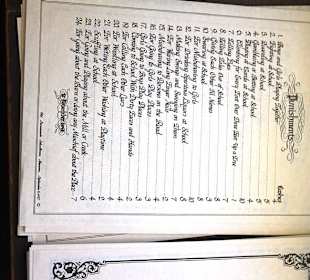 Punishments
Lashes
1. Boys and Girls Playing Together 4
2. Fighting at School 5
3. Quarreling at School 5
4. Gambling or Betting at School 4
5. Playing at Cards at School 10
6. Climbing for Every Foot Over Three Feet Up a Tree 1
7. Telling Lies 7
8. Telling Tales Out of School 8
9. Giving Each Other Ill Names 3
10. Swearing at School 8
11. For Misbehaving to Girls 10
12. For Drinking Spirituous Liquors at School 8
13. Making Swings and Swinging on Them 7
14. For Wearing Long Finger Nails 2
15. Misbehaving to Persons on the Road 4
16. For Going to Girls Play Places 3
17. Girls Going to Boys Play Places 3
18. Coming to School With Dirty Faces and Hands 2
19. For Calling Each Other Liars 4
20. For Wrestling at School 4
21. For Wetting Each Other Washing at Playtime 2
22. Scuffling at School 4
23. For Going and Playing about the Mill or Creek 6
24. For going about the Barn or doing any Mischief about the Place 7